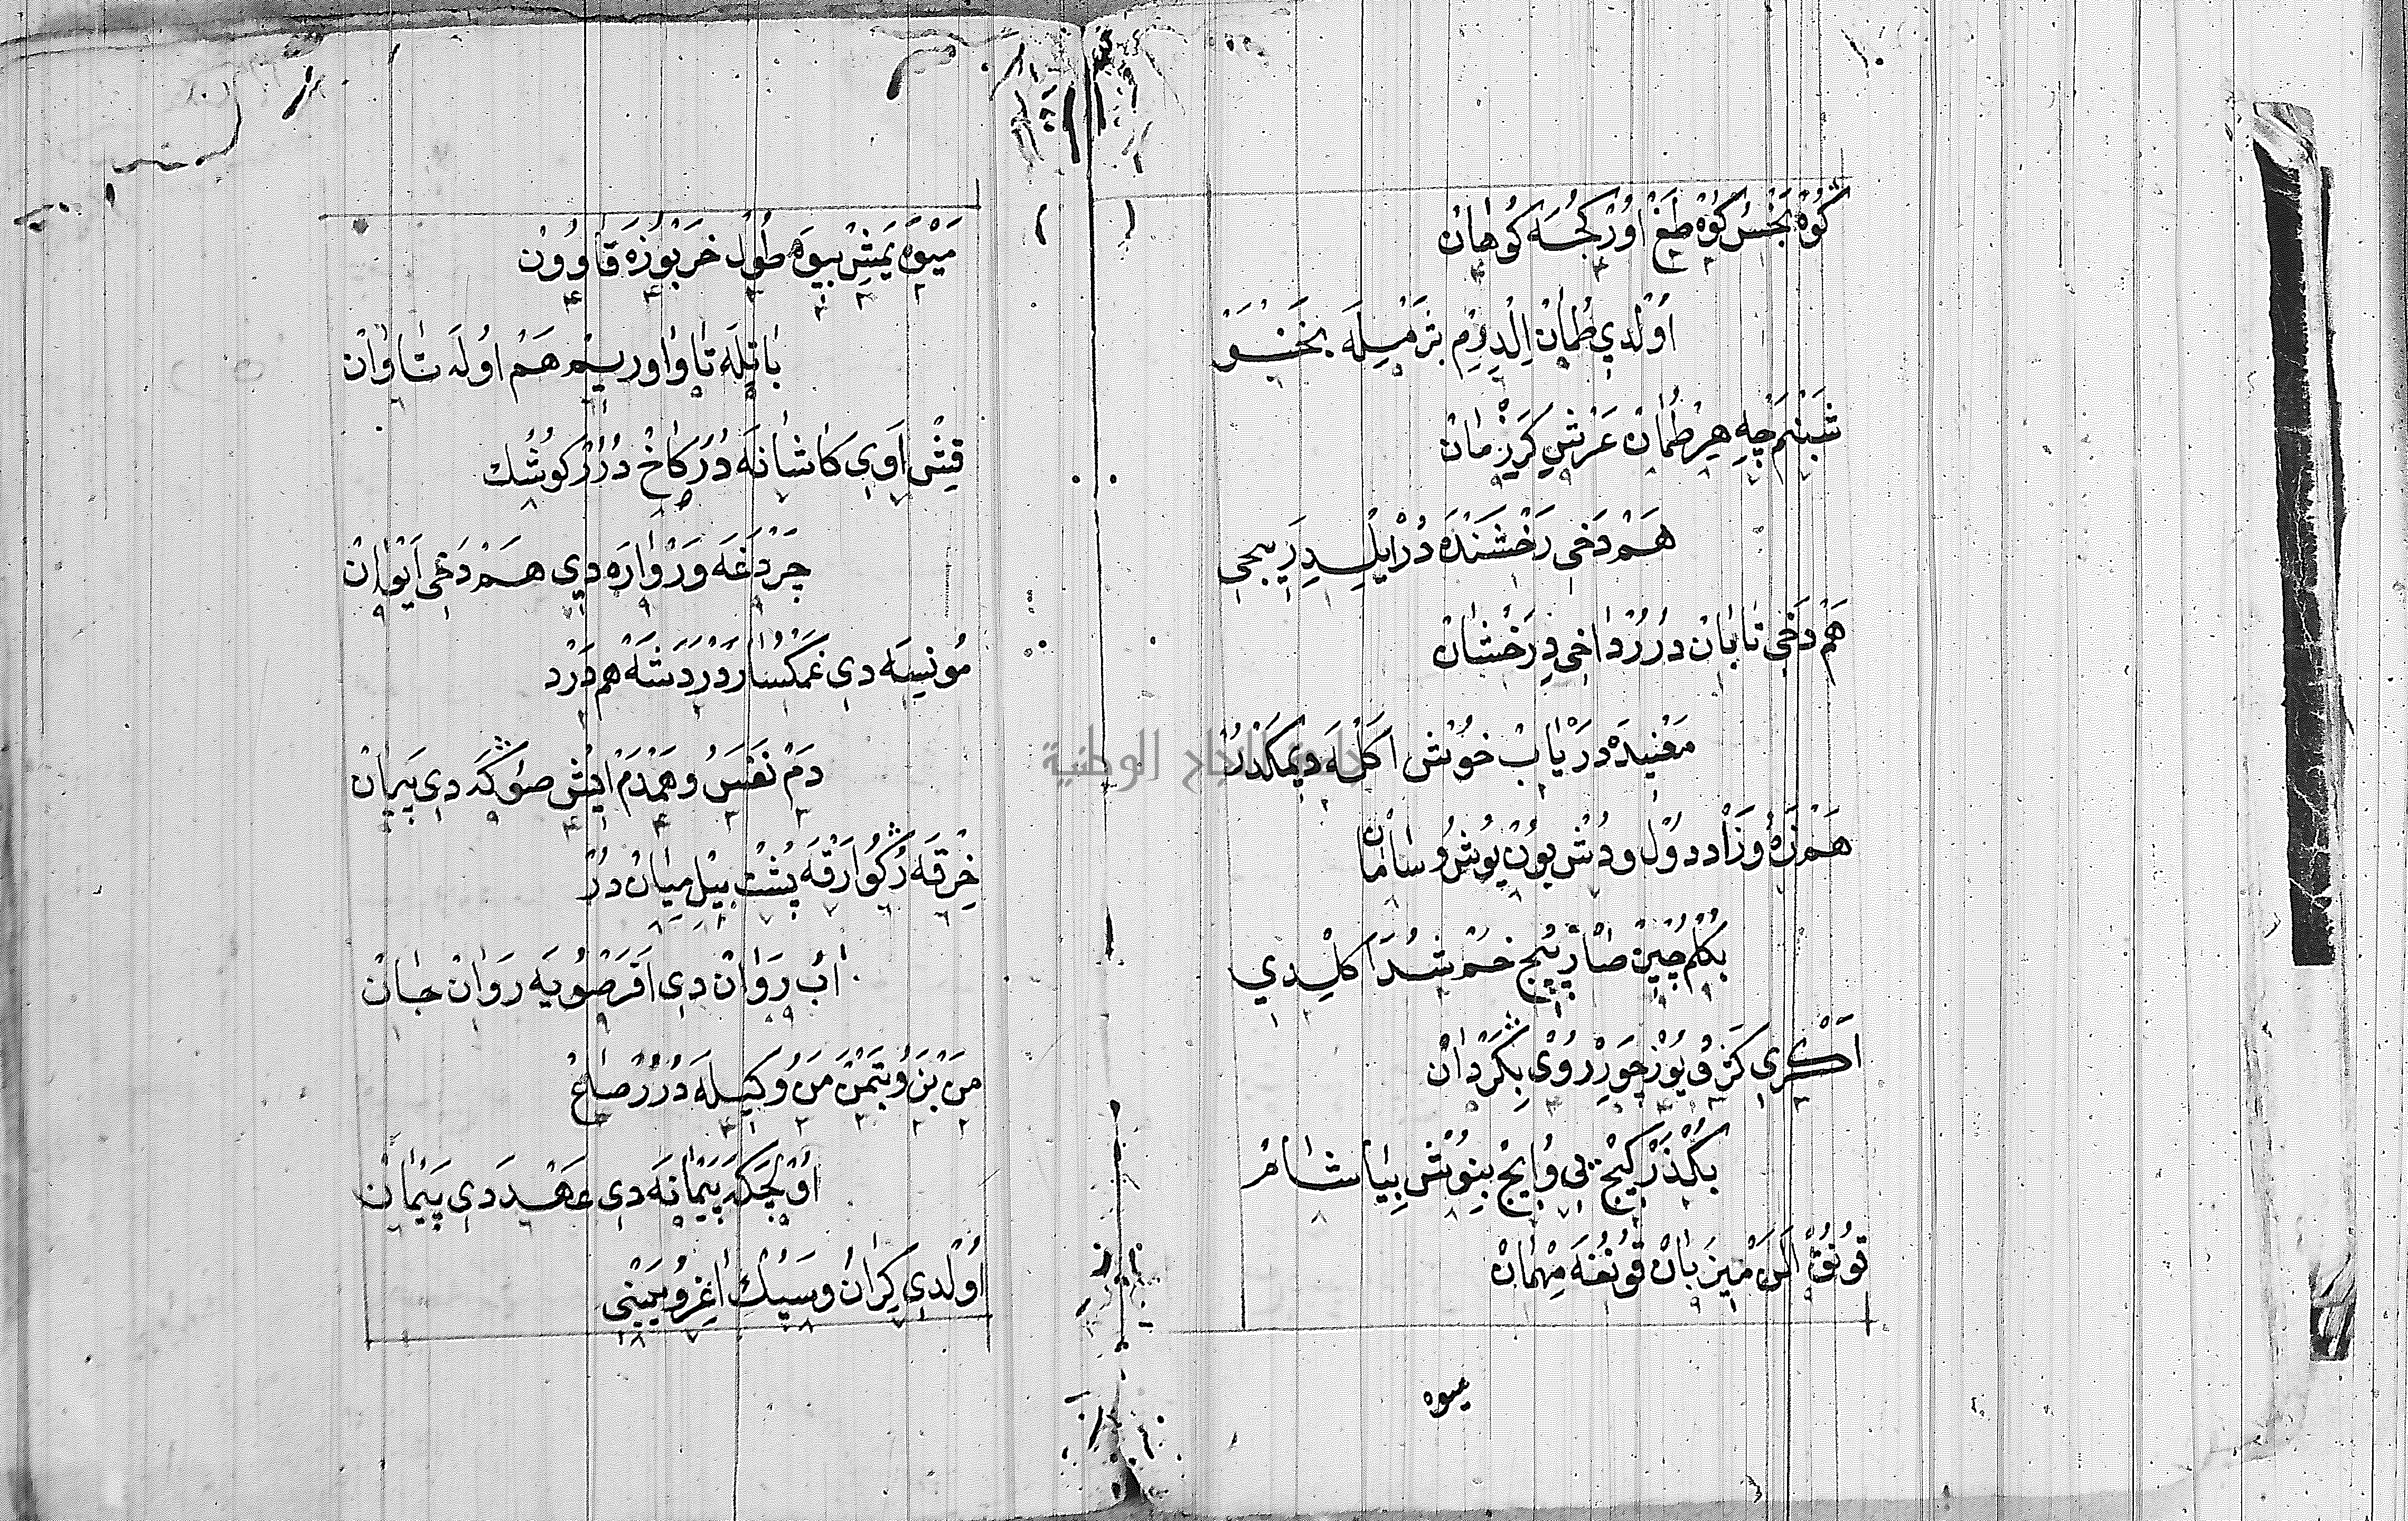 كُوْه بَخْش كُوْه طَغْ اُوْرْكُجُه كُوهَانْ
اُوْلْدِي طُمَانْ اِلْدِرِمْ بَرْمِيلَه
شَبْنَمْ چِه هِرْ طُمَانْ عَرْشِ كَرَزْمَانْ
هَمْ دَخِي رَخْشَنْدَه دُرْ
هَمْ دَخِي تَابَانْ دُرُرْ دَاخِي دِرَخْشَانْ
دَرْيَابْ خُوْش اَكْلَه دِيمَكْدُرْ
هَمْ زِهْ وَزَادْ دُوْل وَدُشْ بُونْ يُوشُ وسَامَانْ
بُكْلُمْ چِينْ صَارْ پِيچْ خَمْ شُدْ اَكِلْدِي
اَكْرِي كَژْ وُ يُوزْ چَوِرْ رُوْيْ بِكَرْدَانْ
بُكْذَرْ كِيجْ بِي وُ اِيجْ بِنُوشْ بِيَاشَامْ
قُونُقْ اَلَنْ مِيزَبَانْ قُونُغَه مِهْمَانْ
ميوه
مَيْوَه يَمِشْ بِيوَه طُولْ خَرْبُوزَه قَاوُونْ
بَاتِلَه تَاوَا وَرِيسِه هَمْ اُولَه تَاوَانْ
قِيشْ اَوِي كَاشَانَه دُرْ كَاخْ دُرُرْ كُوشْكْ
چَرْدَغَه وَرْوَارَه دِي هَمْ دَخِي اَيْوَانْ
مُونِسَه دِي غَمْكُسَارْ دَرْدَشَه هَمْدَرْدْ
دَمْ نَفَسْ وهَمْدَمْ اِيشْ صُوڭ كَه دِي پَيْمَانْ
خِرْقَه رُكُو اَرْقَه پُشْتْ بِيلْ مِيَانْ دُرْ
اٰبْ رَوَانْ دِي اَقَرْ صُويَه رَوَانْ جَانْ
مَنْ بَنْ وُ بَتْمَنْ مَنُ وكِيلَه دُرُرْ صَاعْ
اُولْچَكَه پَيْمَانَه دِي عَهْدَه دِي پَيْمَانْ
اُوْلْدِي كِرَانْ وسَبُكْ اَغِرُ ويَيْنِي